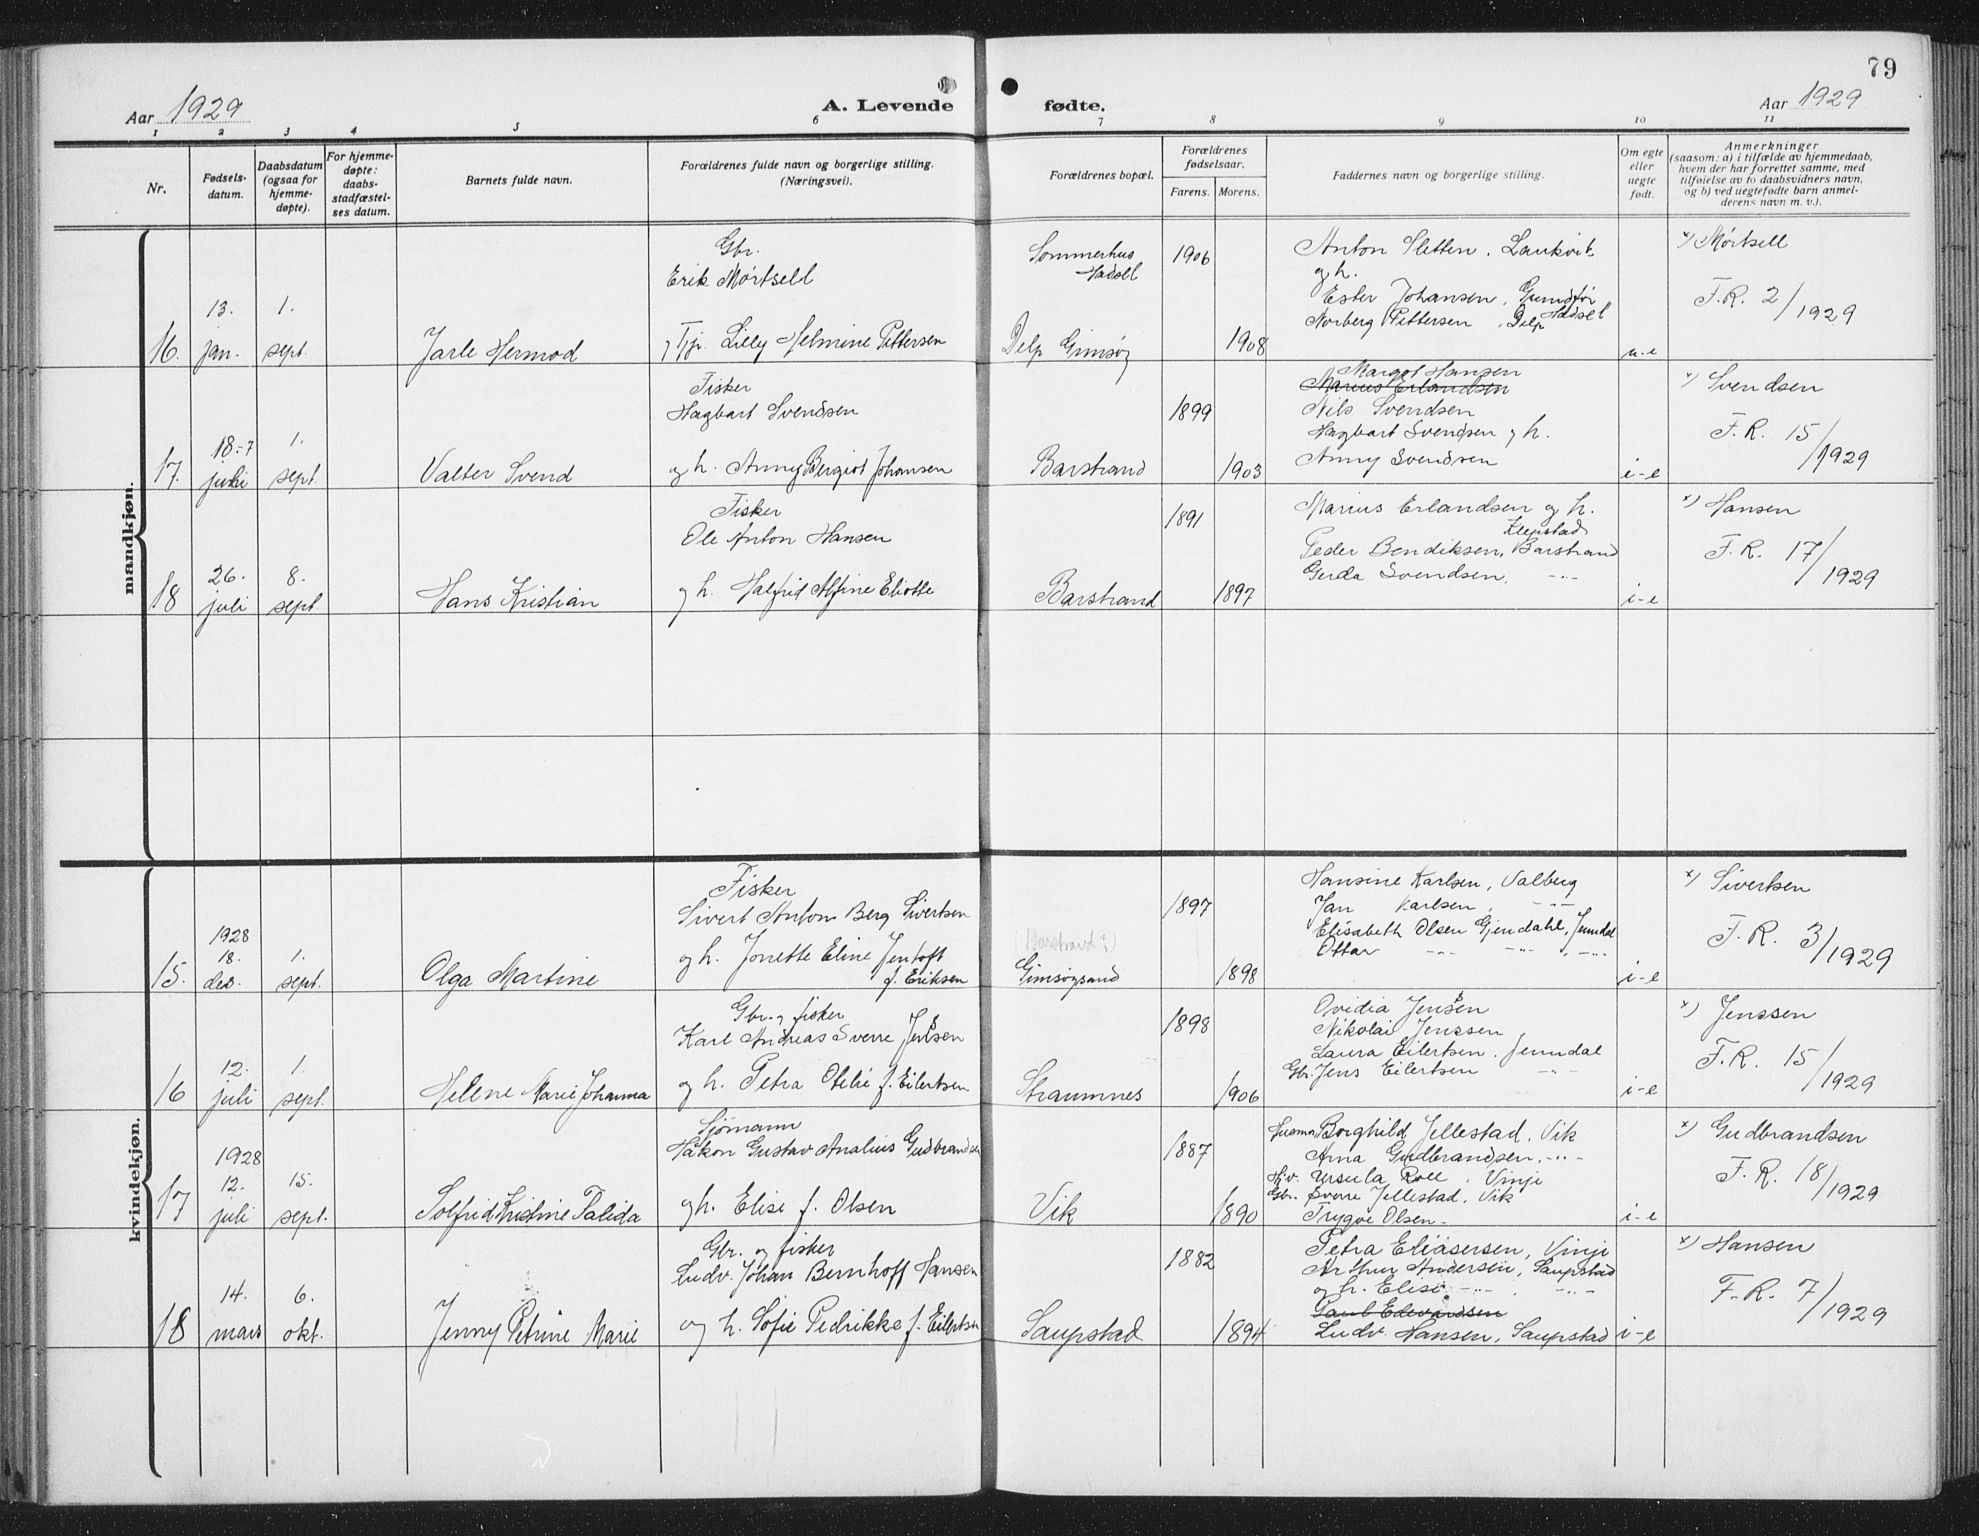 79
Aar 1929
A. Levende fødte.
Aar 1929
1 2 3 4 5 6 7 8 9 10 11
Nr.
Fødsels-
datum.
Daabsdatum
(ogsaa for
hjemme-
døpte).
For hjemme-
døpte:
daabs-
stadfæstel-
ses datum.
Barnets fulde navn.
Forældrenes fulde navn og borgerlige stilling.
(Næringsvei).
Forældrenes bopæl.
Forældrenes
fødselsaar.
Farens. Morens.
Faddernes navn og borgerlige stilling.
Om egte
eller
uegte
født.
Anmerkninger
(saasom: a) i tilfælde av hjemmedaab,
hvem der har forrettet samme, med
tilføielse av to daabsvidners navn,
og b) ved uegtefødte barn anmel-
derens navn m. v.).
mandkjøn.
16.
13.
jan.
1.
sept.
Jarle Hermod
Gbr.
Erik Mørtsell
og Tjp. Lilly Helmine Pettersen
Sommerhus
Hadsel
Delp Gimsøy
1906
1908
Anton Sletten, Laukvik
og h.
Ester Johansen,
Norberg Pettersen, Delp
Hadsel
u-e
x) Mørtsell
F. R. 2/1929
17.
18.-7
juli
1.
sept.
Valter Svend
Fisker
Hagbart Svendsen
og h. Anny Bergiot Johansen
Barstrand
1899
1903
Margot Hansen
Marius Erlandsen
Nils Svendsen
Hagbart Svendsen og h.
Anny Svendsen
i-e
x) Svendsen
F. R. 15/1929
18
26.
juli
8.
sept.
Hans Kristian
Fisker
Ole Anton Hansen
og h. Halfrid Alfine Eliotte
Barstrand
1891
1897
Marius Erlandsen og h.
Klepstad
Peder Bendiksen, Barstrand
Gerda Svendsen. -"-
i-e
x) Hansen
F. R. 17/1929
kvindekjøn.
15.
1928
18.
des.
1.
sept.
Olga Martine
Fisker
Sivert Anton Berg Sivertsen
og h. Jonette Eline Jentoft
f. Eriksen
(Barstrand?)
Gimsøysand
1897
1898
Hansine Karlsen, Valberg
Jan Karlsen, -"-
Elisabeth Olsen Gjendahl, Jenndal
Ottar -"- -"- , -"-
i-e
x) Sivertsen
F. R. 3/1929
16
12.
juli
1.
sept.
Helene Marie Johanna
Gbr. og fisker
Karl Andreas Sverre Jenssen
og h. Petra Otelie f. Eilertsen
Straumnes
1898
1906
Ovidia Jenssen
Nikolai Jenssen
Laura Eilertsen, Jenndal
Gbr. Jens Eilertsen -"-
i-e
x) Jenssen
F. R. 15/1929
17
1928
12.
juli
15.
sept.
Solfrid Kristine Talida
Sjømann
Håkon Gustav Analius Gudbrandsen
og h. Elise f. Olsen
Vik
1887
1890
Husmor Borghild Jellestad, Vik
Arna Gudbrandsen, -"-
Hjv. Ursula Roll, Vinje
Gbr. Sverre Jellestad, Vik
Trygve Olsen -
i-e
x) Gudbrandsen
F. R. 18/1929
18
14.
mars
6.
okt.
Jenny Petrine Marie
Gbr. og fisker
Ludv. Johan Bernhoff Hansen
og h. Sofie Pedrikke f. Eilertsen
Saupstad
1882
1894
Petra Eliasersen, Vinje
Arthur Andersen, Saupstad
og h. Elise -"- , -"-
Paul Edevardsen
Ludv. Hansen, Saupstad
i-e
x) Hansen
F. R. 7/1929